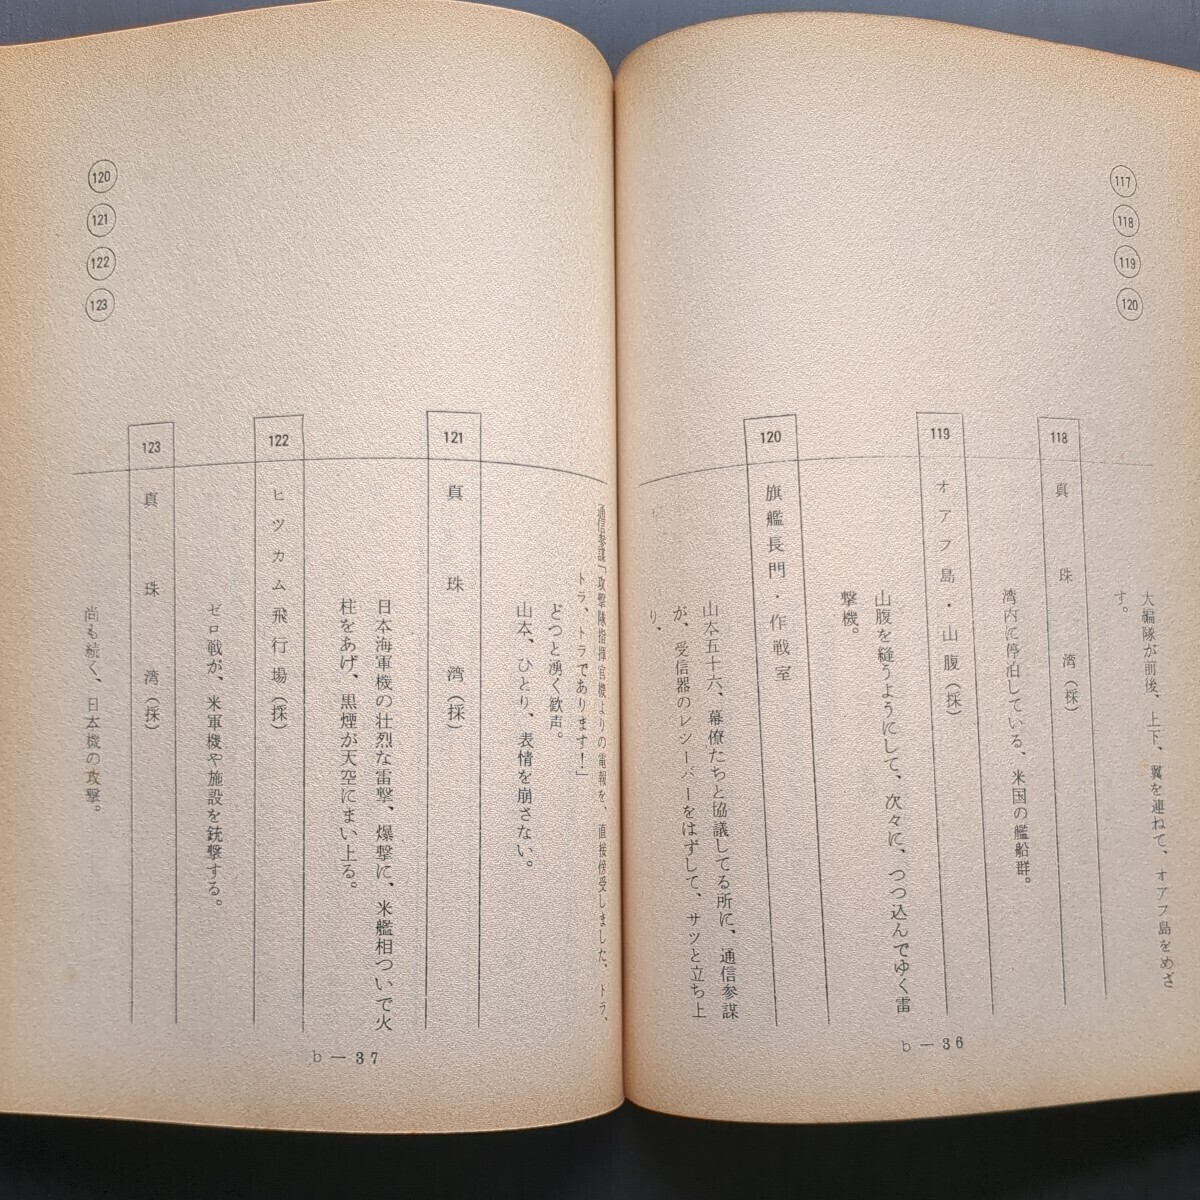 117
118
119
120
大編隊が前後、上下、翼を連ねて、オアフ島をめざ
す。
118 真珠湾(採)
湾内に停泊している、米国の艦船群。
119 オアフ島・山腹(採)
山腹を縫うようにして、次々に、つつ込んでゆく雷
撃機。
120 旗艦長門・作戦室
山本五十六、幕僚たちと協議してる所に、通信参謀
が、受信器のレシーバーをはずして、サツと立ち上
り、
b—36
120
121
122
123
通信参謀「攻撃隊指揮官機よりの電報を、直接傍受しました、トラ、
トラ、トラであります!」
どつと湧く歓声。
山本、ひとり、表情を崩さない。
121 真珠湾(採)
日本海軍機の壮烈な雷撃、爆撃に、米艦相ついで火
柱をあげ、黒煙が天空にまい上る。
122 ヒツカム飛行場(採)
ゼロ戦が、米軍機や施設を銃撃する。
123 真珠湾(採)
尚も続く、日本機の攻撃。
b—37